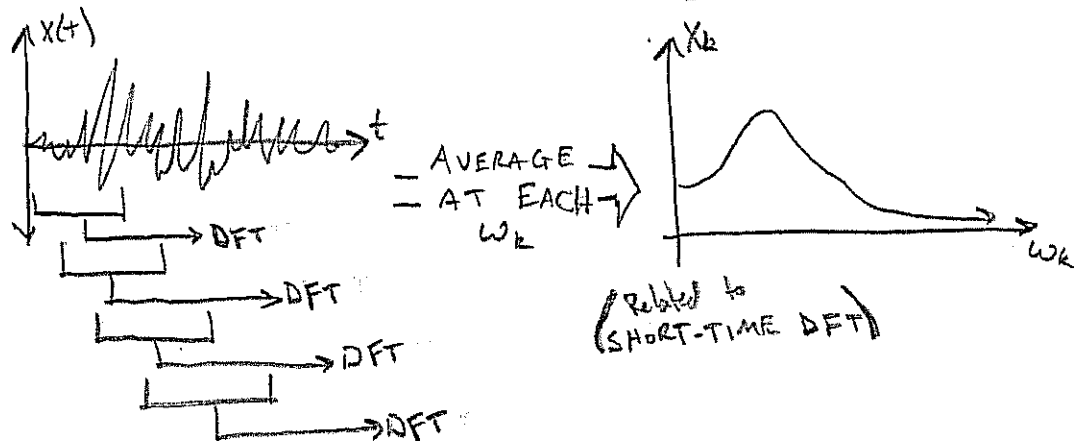 X(t)
t
DFT
DFT
DFT
DFT
AVERAGE
AT EACH
ωk
Xk
ωk
(Related to
SHORT-TIME DFT)